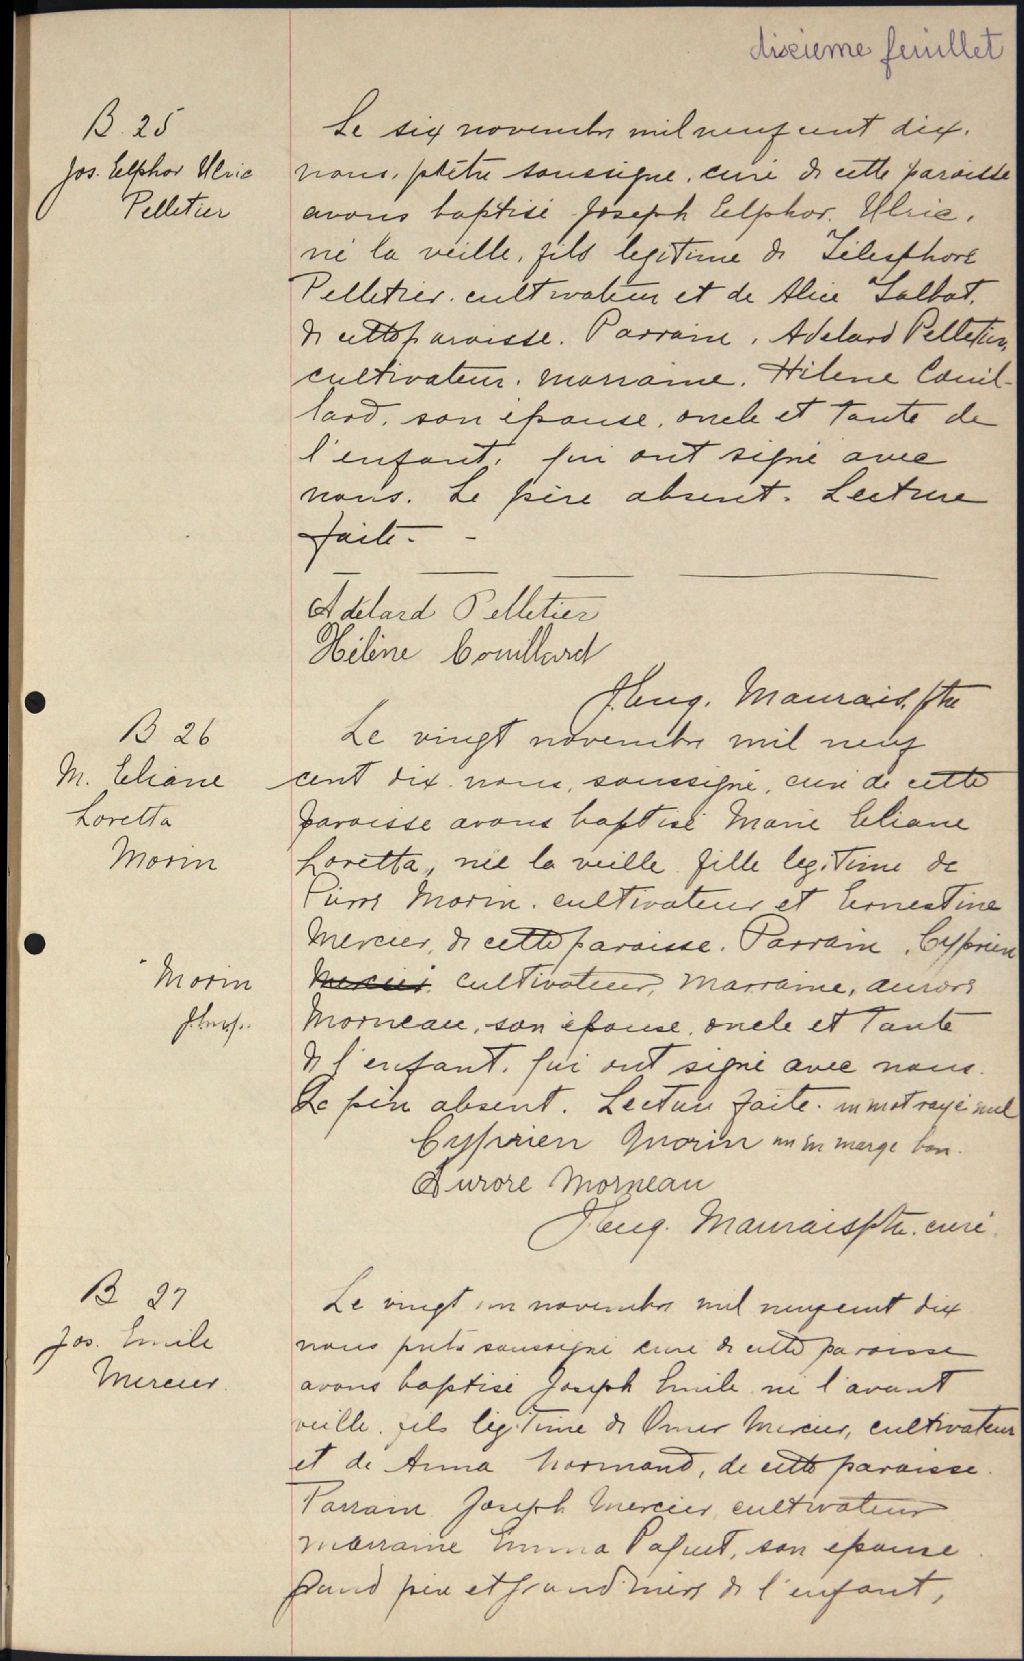 dixieme feuillet
B. 25
Jos. Elphor Ulric
Pelletier
Le six novembre mil neuf cent dix,
nous, prêtre soussigne, curé de cette paroisse
avons baptisé Joseph Elphor. Ulric,
né la veille, fils legitime de Télesphore
Pelletier. cultivateur et de Alice Talbot,
de cette paroisse. Parrain, Adelard Pelletier,
cultivateur, marraine, Hélène Couil-
lard, son épouse, oncle et tante de
l'enfant, qui ont signé avec
nous. Le père absent. Lecture
faite. -
Adélard Pelletier
Hélène Couillard
J. Eug. Maurais, ptre
B 26
M. Eliane
Loretta
Morin
Le vingt novembre mil neuf
cent dix nous, soussigné, curé de cette
paroisse avons baptisé Marie Eliane
Loretta, née la veille fille legitime de
Pierre Morin, cultivateur et Ernestine
Mercier, de cette paroisse. Parrain, Cyprien
Mercier, cultivateur, marraine, aurore
Morin
Morneau, son épouse, oncle et tante
de l'enfant, qui ont signé avec nous.
Le père absent. Lecture faite. un mot rayé nul
Cyprien Morin un en marge bon.
Aurore Morneau
J. Eug. Maurais ptre. curé.
B 27
Jos. Emile
Mercier
Le vingt un novembre mil neuf cent dix
nous prêtre soussigné curé de cette paroisse
avons baptisé Joseph Emile né l'avant
veille, fils légitime de Omer Mercier, cultivateur
et de Anna Normand, de cette paroisse.
Parrain Joseph Mercier, cultivateur
marraine Emma Paquet, son épouse
grand père et grand'mère de l'enfant,